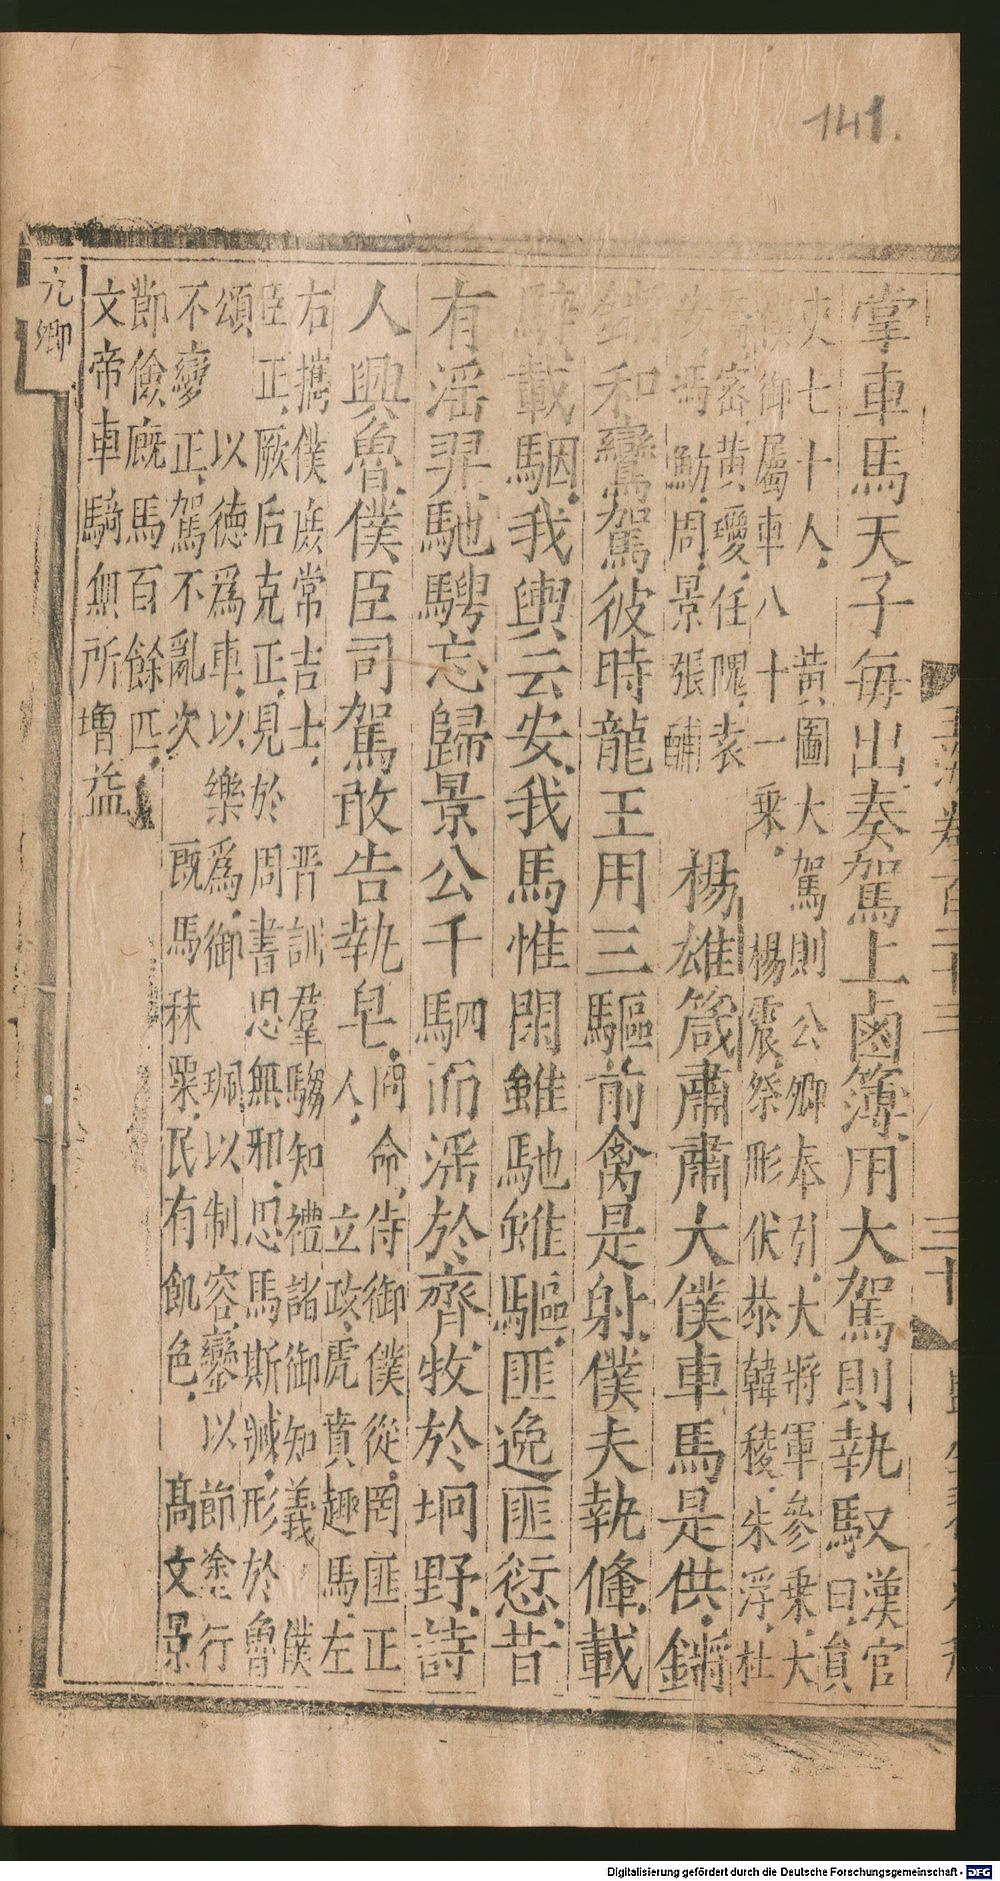 141.
掌車馬天子每出奏駕上鹵簿用大駕則執馭漢官曰員
吏七十人黃圖大駕則公卿奉引大將軍參乘大
僕御屬車八十一乘楊震祭肜伏恭韓稜朱浮杜
密黃瓊任隗袁
安馮魴周景張酺
楊雄箴肅肅大僕車馬是供鏘
鏘和鸞駕彼時龍王用三驅前禽是射僕夫執鞗載
騂載駰我輿云安我馬惟閑雖馳雖驅匪逸匪愆昔
有淫羿馳騁忘歸景公千駟而淫於齊牧於坰野詩
人興魯僕臣司駕敢告執皂
冏命侍御僕從罔匪正
人立政虎賁趣馬左
右攜僕庶常吉士晉訓羣騶知禮諸御知義僕
臣正厥后克正見於周書思無邪思馬斯臧形於魯
頌以德爲車以樂爲御珮以制容鑾以節塗行
不變正駕不亂次既馬秣粟民有飢色高文景
節儉廐馬百餘匹
文帝車騎無所增益
玉海卷百二十三
三十
元卿
Digitalisierung gefördert durch die Deutsche Forschungsgemeinschaft - DFG